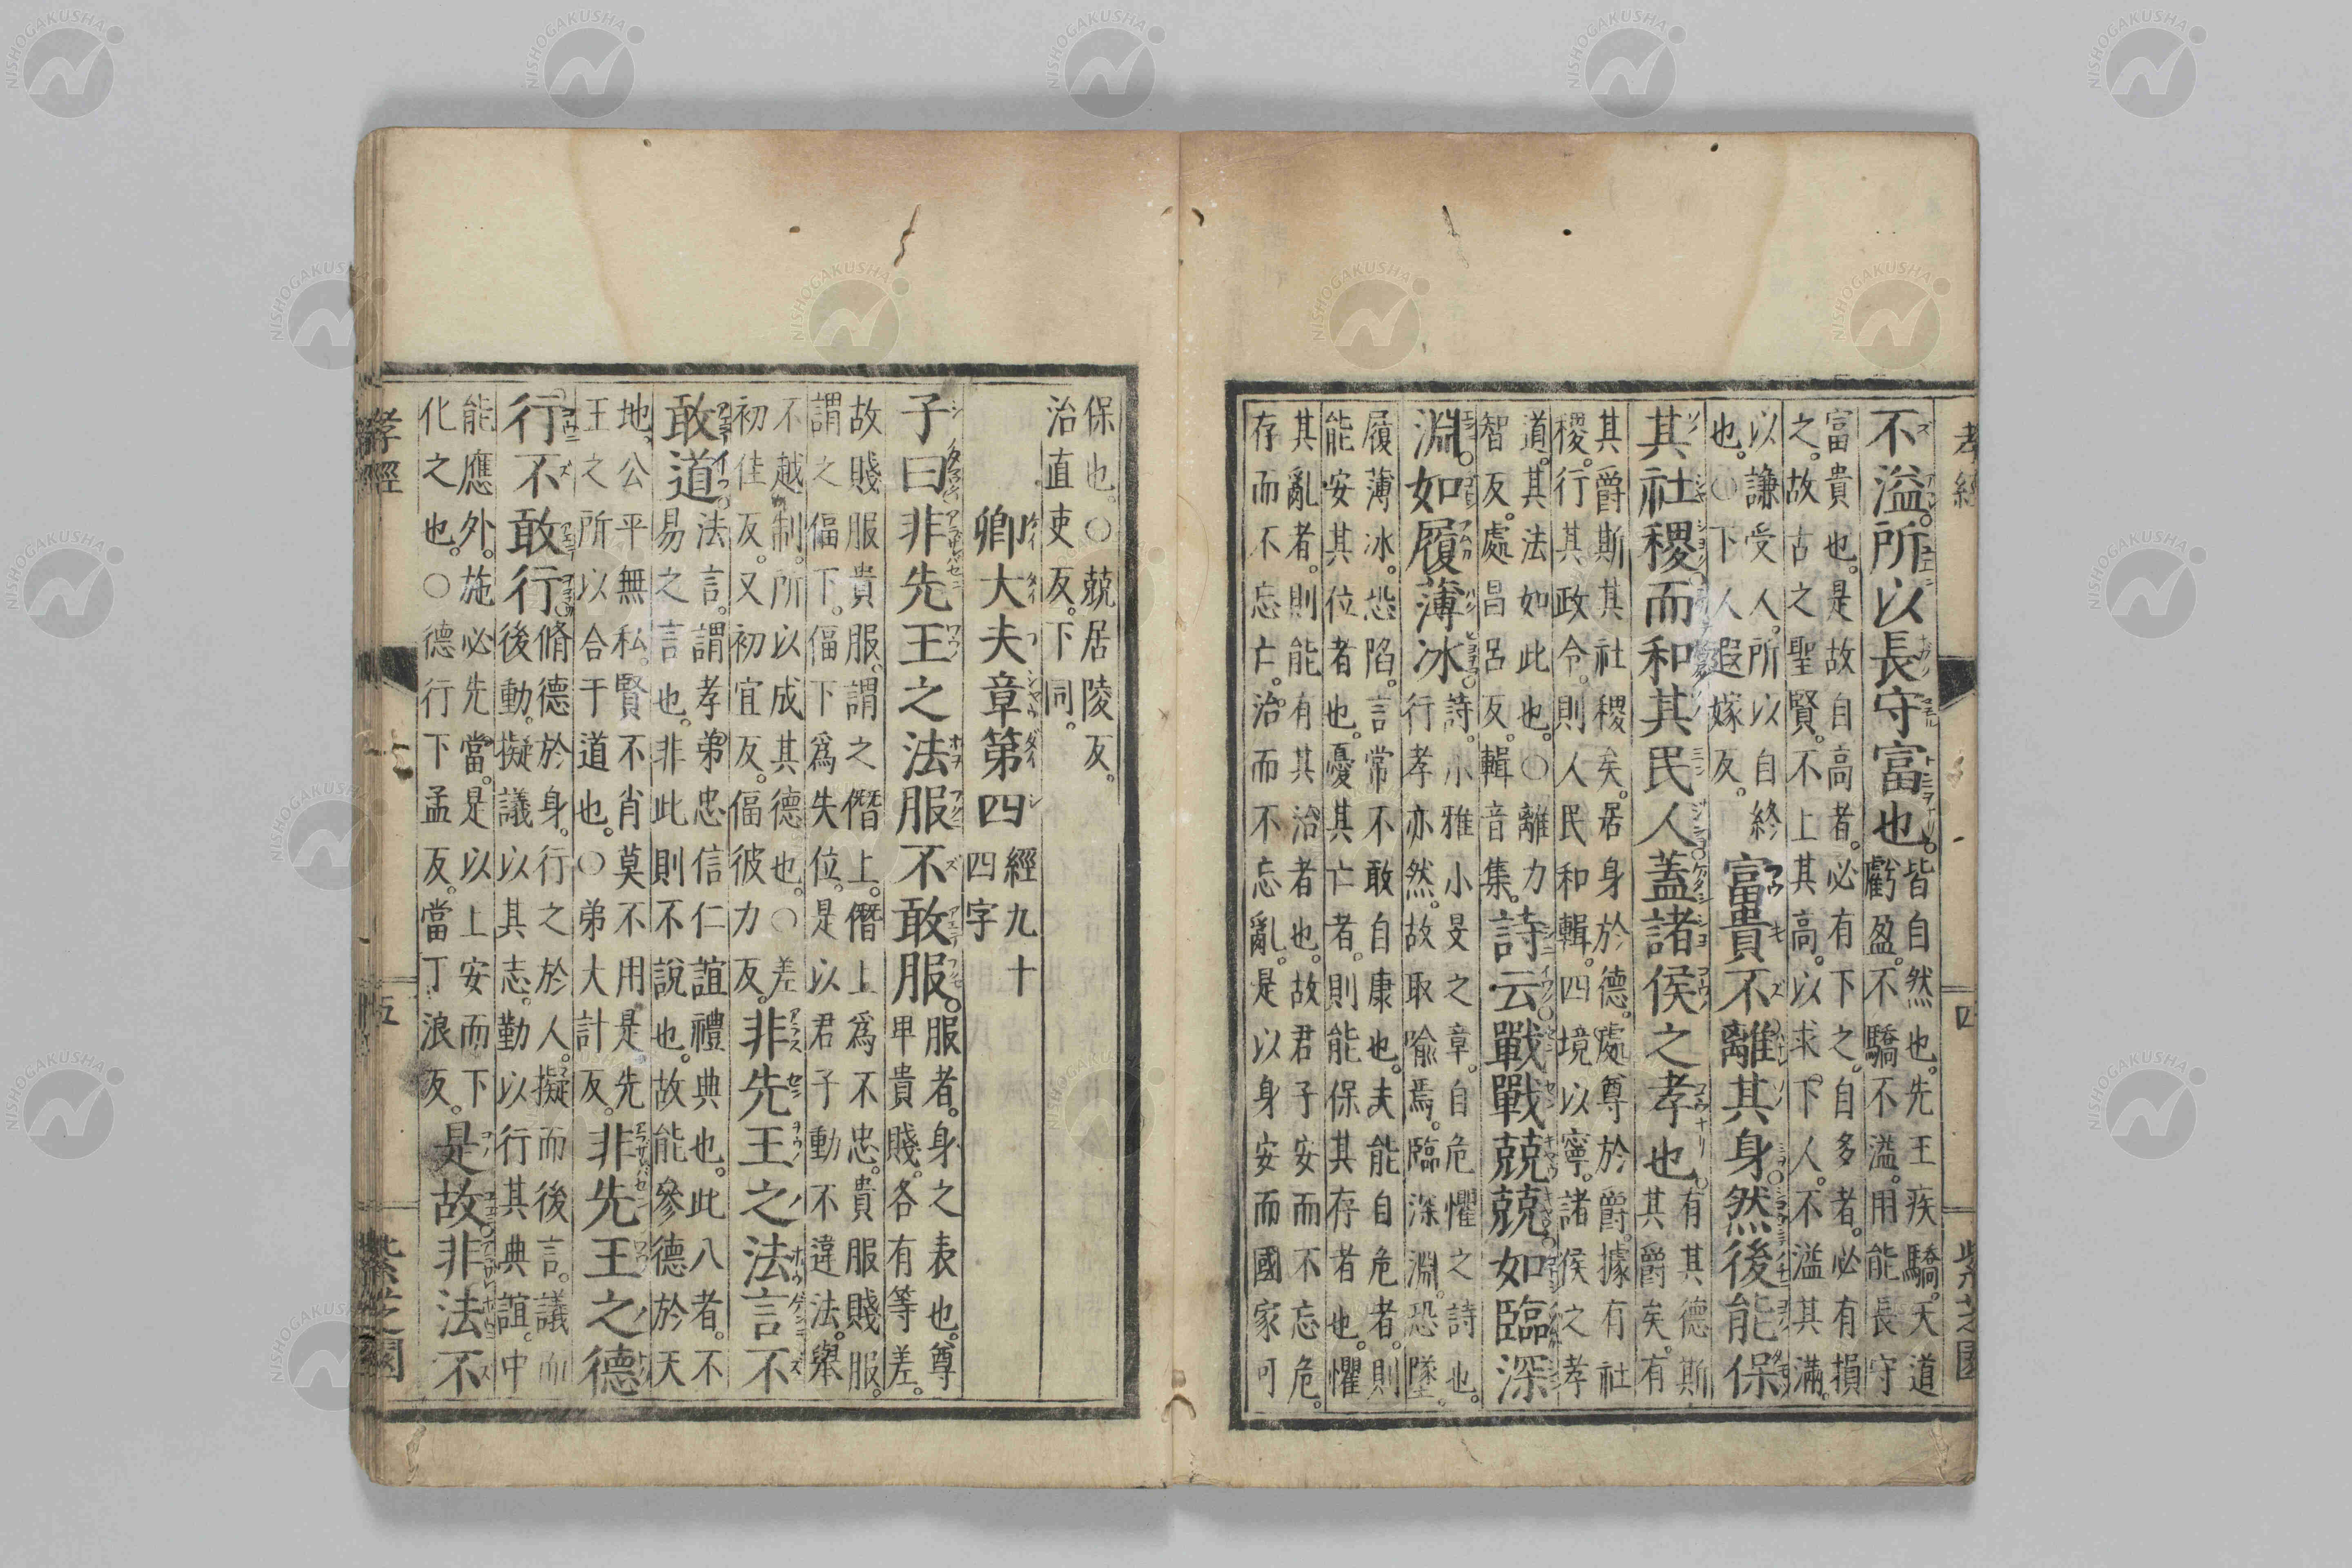 不溢所以長守富也皆自然也先王疾驕天道
虧盈不驕不溢用能長守
富貴也是故自高者必有下之自多者必有損
之故古之聖賢不上其高以求下人不溢其滿
以謙受人所以自終
也○下人遐嫁反富貴不離其身然後能保
其社稷而和其民人蓋諸侯之孝也有其德斯
其爵矣有
其爵斯其社稷矣居身於德處尊於爵據有社
稷行其政令則人民和輯四境以寧諸侯之孝
道其法如此也○離力
智反處昌呂反輯音集詩云戰戰兢兢如臨深
淵如履薄冰詩小雅小旻之章自危懼之詩也
行孝亦然故取喩焉臨深淵恐墜
履薄冰恐陷言常不敢自康也夫能自危者則
能安其位者也憂其亡者則能保其存者也懼
其亂者則能有其治者也故君子安而不忘危
存而不忘亡治而不忘亂是以身安而國家可
保也○兢居陵反
治直吏反下同
卿大夫章第四經九十
四字
子曰非先王之法服不敢服服者身之表也尊
卑貴賤各有等差
故賤服貴服謂之僭上僭上爲不忠貴服賤服
謂之偪下偪下爲失位是以君子動不違法舉
不越制所以成其德也○差
初佳反又初宜反偪彼力反非先王之法言不
敢道法言謂孝弟忠信仁誼禮典也此八者不
易之言也非此則不說也故能參德於天
地公平無私賢不肖莫不用是先
王之所以合于道也○弟大計反非先王之德
行不敢行脩德於身行之於人擬而後言議而
後動擬議以其志動以行其典誼中
能應外施必先當是以上安而下
化之也○德行下孟反當丁浪反是故非法不
孝經
四
紫芝園
孝經
五
紫芝園